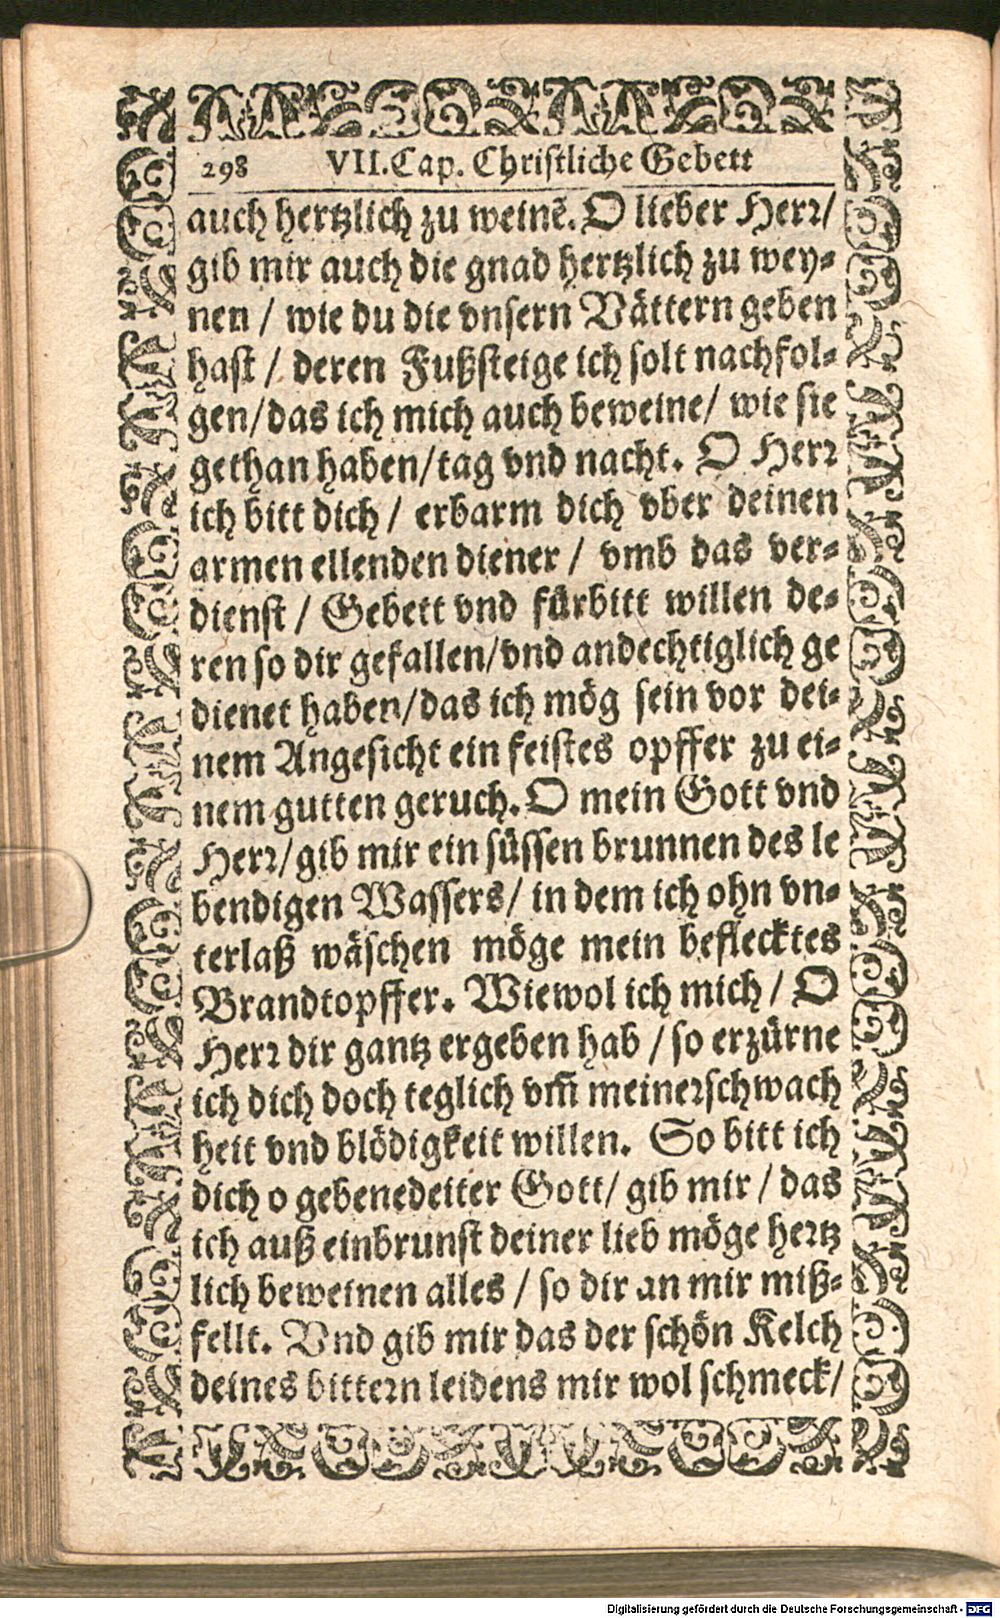 298 VII.Cap. Christliche Gebett
auch hertzlich zu weinē. O lieber Herr/
gib mir auch die gnad hertzlich zu wey-
nen / wie du die vnsern Vättern geben
hast / deren Fußsteige ich solt nachfol-
gen/das ich mich auch beweine/ wie sie
gethan haben/tag vnd nacht. O Herr
ich bitt dich / erbarm dich vber deinen
armen ellenden diener / vmb das ver-
dienst / Gebett vnd fürbitt willen de-
ren so dir gefallen/vnd andechtiglich ge
dienet haben/das ich mög sein vor dei-
nem Angesicht ein feistes opffer zu ei-
nem gutten geruch. O mein Gott vnd
Herr/gib mir ein süssen brunnen des le
bendigen Wassers/ in dem ich ohn vn-
terlaß wäschen möge mein beflecktes
Brandtopffer. Wiewol ich mich / O
Herr dir gantz ergeben hab / so erzürne
ich dich doch teglich vm̄ meiner schwach
heit vnd blödigkeit willen. So bitt ich
dich o gebenedeiter Gott/ gib mir / das
ich auß einbrunst deiner lieb möge hertz
lich beweinen alles / so dir an mir miß-
fellt. Vnd gib mir das der schön Kelch
deines bittern leidens mir wol schmeck/
Digitalisierung gefördert durch die Deutsche Forschungsgemeinschaft - DFG